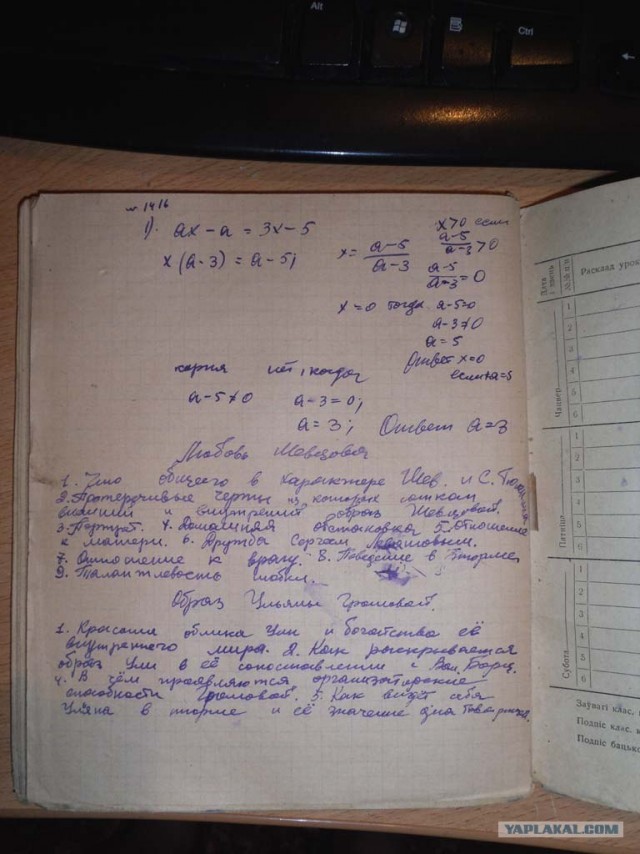 Alt
Ctrl
№ 1416
1). ax - a = 3x - 5
x(a-3) = a-5;
x = a-5 / a-3
x>0 если
a-5 / a-3 > 0
a-5 / a-3 = 0
x=0 тогда a-5=0
a-3≠0
a=5
Ответ x=0
если a=5
корня нет, когда
a-5≠0 a-3=0;
a=3; Ответ a=3
Любовь Шевцова
1. Что общего в характере Шев. и С. Тюленина
2. черты из которых
внешний и внутренний образ Шевцовой.
3. Портрет. 4. Домашняя обстановка 5. Отношение
к матери. 6. Дружба Сергеем
7. Отношение к врагу. 8. Поведение в тюрьме
9. Талантливость
Образ Ульяны Громовой.
1. Красота облика Ули и богатство её
внутреннего мира. 2. Как раскрывается
образ Ули в её сопоставлении с Вал. Борц.
4. В чём проявляются организаторские
способности Громовой. 5. Как ведёт себя
Уляна в тюрьме и её значение для
Дата
Расклад урок
Чацвер
1
2
3
4
5
6
Пятніца
1
2
3
4
5
6
Субота
1
2
3
4
5
6
Заўвагі клас.
Подпіс клас. к
Подпіс бацько
YAPLAKAL.COM